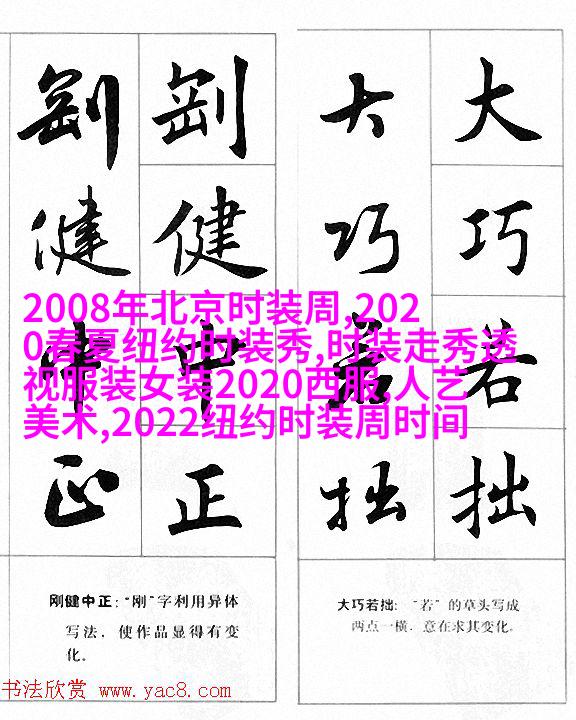 剛 剛
健 健
中 中
正 正
大 大
巧 巧
若 若
拙 拙
2008年北京时装周,202
0春夏纽约时装秀,时装走秀透
视服装女装2020西服,人艺
美术,2022纽约时装周时间
刚健中正：“刚”字利用异体
写法，使作品显得有变
化。
大巧若拙：“若”的草头写成
两点一横，意在求其变化。
书法欣赏 www.yac8.com